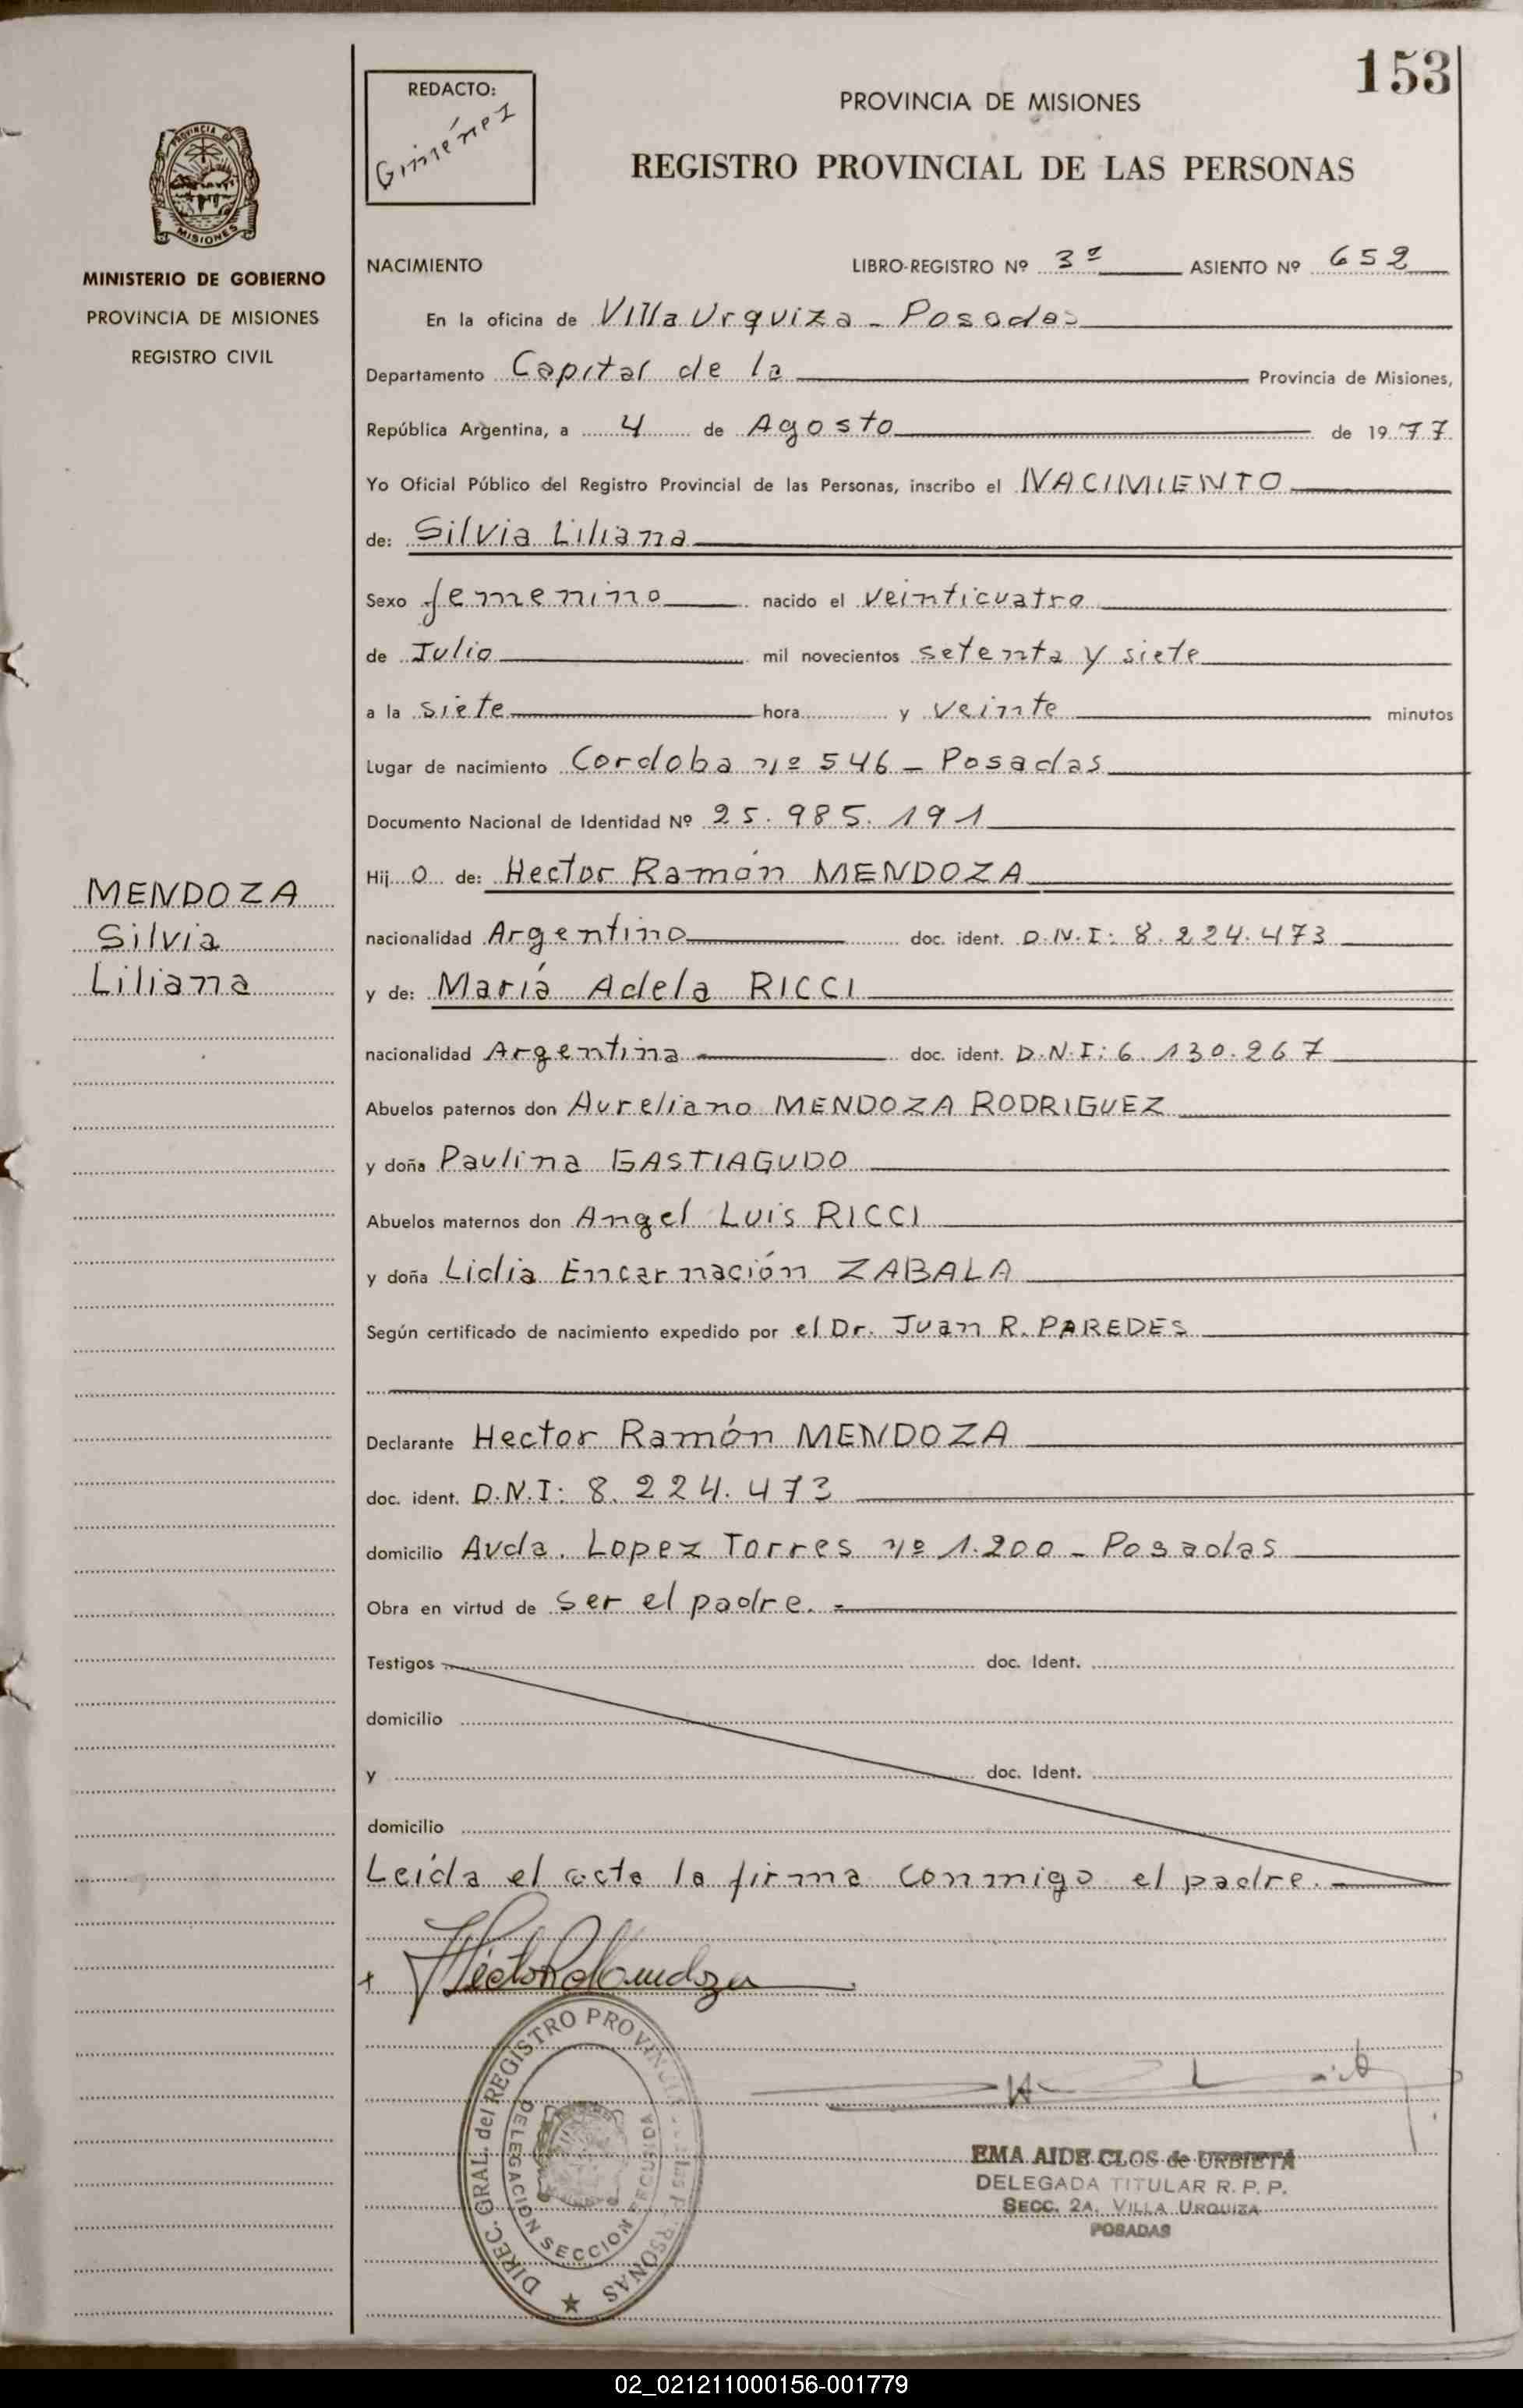 153
REDACTO:
Giménez
PROVINCIA DE MISIONES
REGISTRO PROVINCIAL DE LAS PERSONAS
PROVINCIA DE
MISIONES
MINISTERIO DE GOBIERNO
PROVINCIA DE MISIONES
REGISTRO CIVIL
NACIMIENTO LIBRO-REGISTRO Nº 3º ASIENTO Nº 652
En la oficina de Villa Urquiza - Posadas
Departamento Capital de la Provincia de Misiones,
República Argentina, a 4 de Agosto de 1977
Yo Oficial Público del Registro Provincial de las Personas, inscribo el NACIMIENTO
de: Silvia Liliana
Sexo femenino nacido el veinticuatro
de Julio mil novecientos setenta y siete
a la siete hora y veinte minutos
Lugar de nacimiento Cordoba nº 546 - Posadas
Documento Nacional de Identidad Nº 25.985.191
Hij o de: Hector Ramón MENDOZA
MENDOZA
Silvia
Liliana
nacionalidad Argentino doc. ident. D.N.I: 8.224.473
y de: María Adela RICCI
nacionalidad Argentina doc. ident. D.N.I: 6.130.267
Abuelos paternos don Aureliano MENDOZA RODRIGUEZ
y doña Paulina
Abuelos maternos don Angel Luis RICCI
y doña Lidia Encarnación ZABALA
Según certificado de nacimiento expedido por el Dr. Juan R. PAREDES
Declarante Hector Ramón MENDOZA
doc. ident. D.N.I: 8.224.473
domicilio Avda. Lopez Torres nº 1.200 - Posadas
Obra en virtud de ser el padre. -
Testigos doc. Ident.
domicilio
y doc. Ident.
domicilio
Leída el acta la firma conmigo el padre. -
Héctor R Mendoza
DIREC. GRAL. del REGISTRO PROVINCIAL de las PERSONAS
DELEGACION SECCION SEGUNDA
EMA AIDE CLOS de URBIETA
DELEGADA TITULAR R. P. P.
SECC. 2A. VILLA URQUIZA
POSADAS
02_021211000156-001779